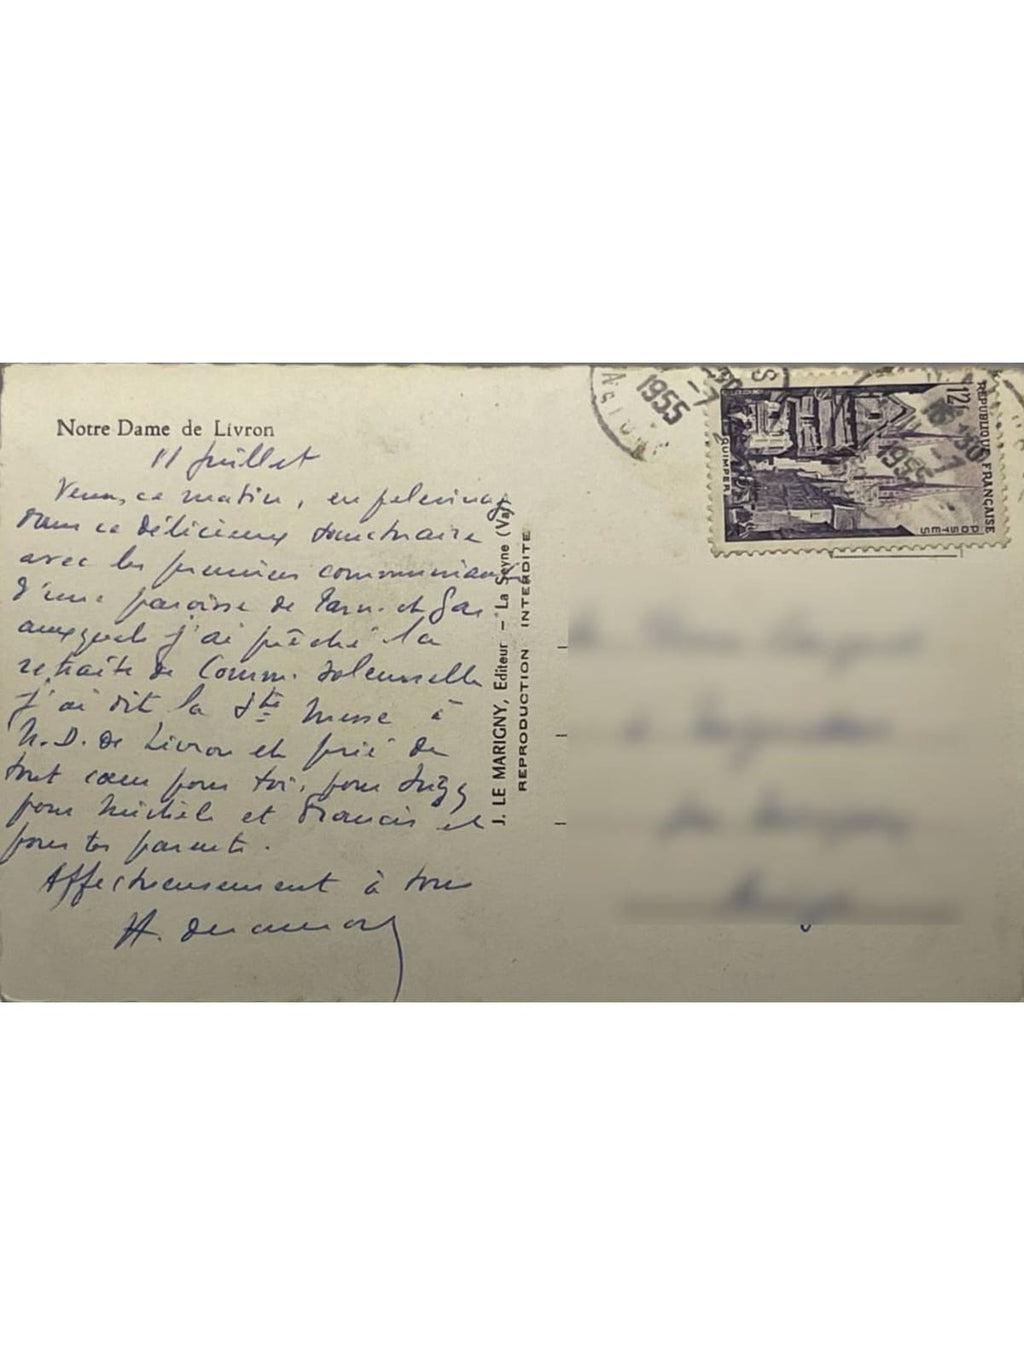 Notre Dame de Livron
11 Juillet
Venu, ce matin, en pelerinage
dans ce délicieux sanctuaire
avec les premiers communiants
d'une paroisse de Tarn-et-Gar
auxquels j'ai prêché la
retraite de Comm. solennelle
j'ai dit la Ste Messe à
N.D. de Livron et prié de
tout cœur pour toi, pour Suzy
pour Michèle et Francis et
pour tes parents.
Affectueusement à tous
J. LE MARIGNY, Editeur - La Seyne (Var)
REPRODUCTION INTERDITE
1955
-7
12F
REPUBLIQUE FRANÇAISE
POSTES
QUIMPER
30
-7
1955